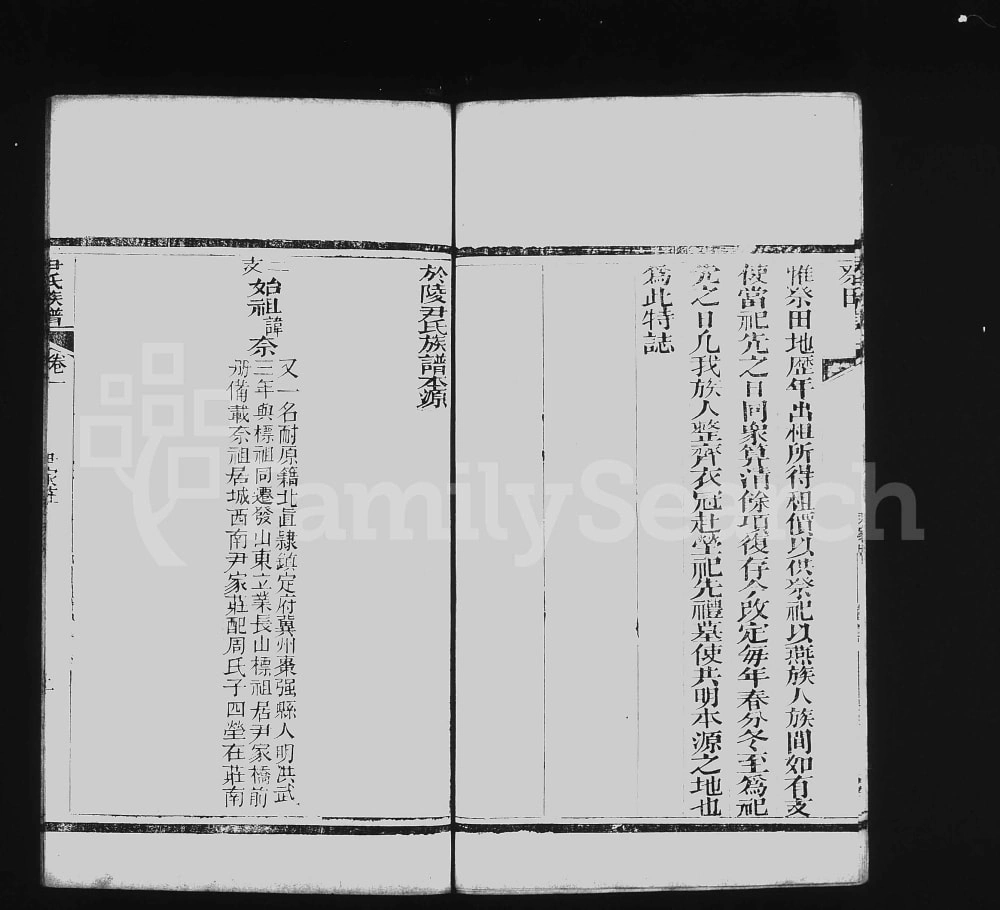 祭田
惟祭田地歷年出租所得租價以供祭祀以燕族人族間如有支
使當祀先之日同眾算清餘項復存今改定每年春分冬至爲祀
先之日凡我族人整齊衣冠赴塋祀先禮墓使共明本源之地也
爲此特誌
於陵尹氏族譜本源
二支
始祖諱奈
又一名耐原籍北直隸鎮定府冀州棗强縣人明洪武
三年與標祖同遷發山東立業長山標祖居尹家橋前
册備載奈祖居城西南尹家莊配周氏子四塋在莊南
尹氏族譜
卷一
尹家莊
FamilySearch